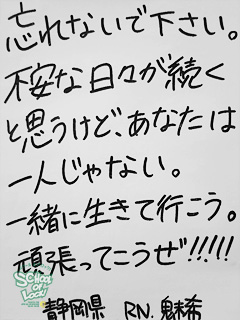 忘れないで下さい。
不安な日々が続く
と思うけど、あなたは
一人じゃない。
一緒に生きて行こう。
頑張ってこうぜ!!!!!
SCHOOL
OF
LOCK!
静岡県 RN.魅希